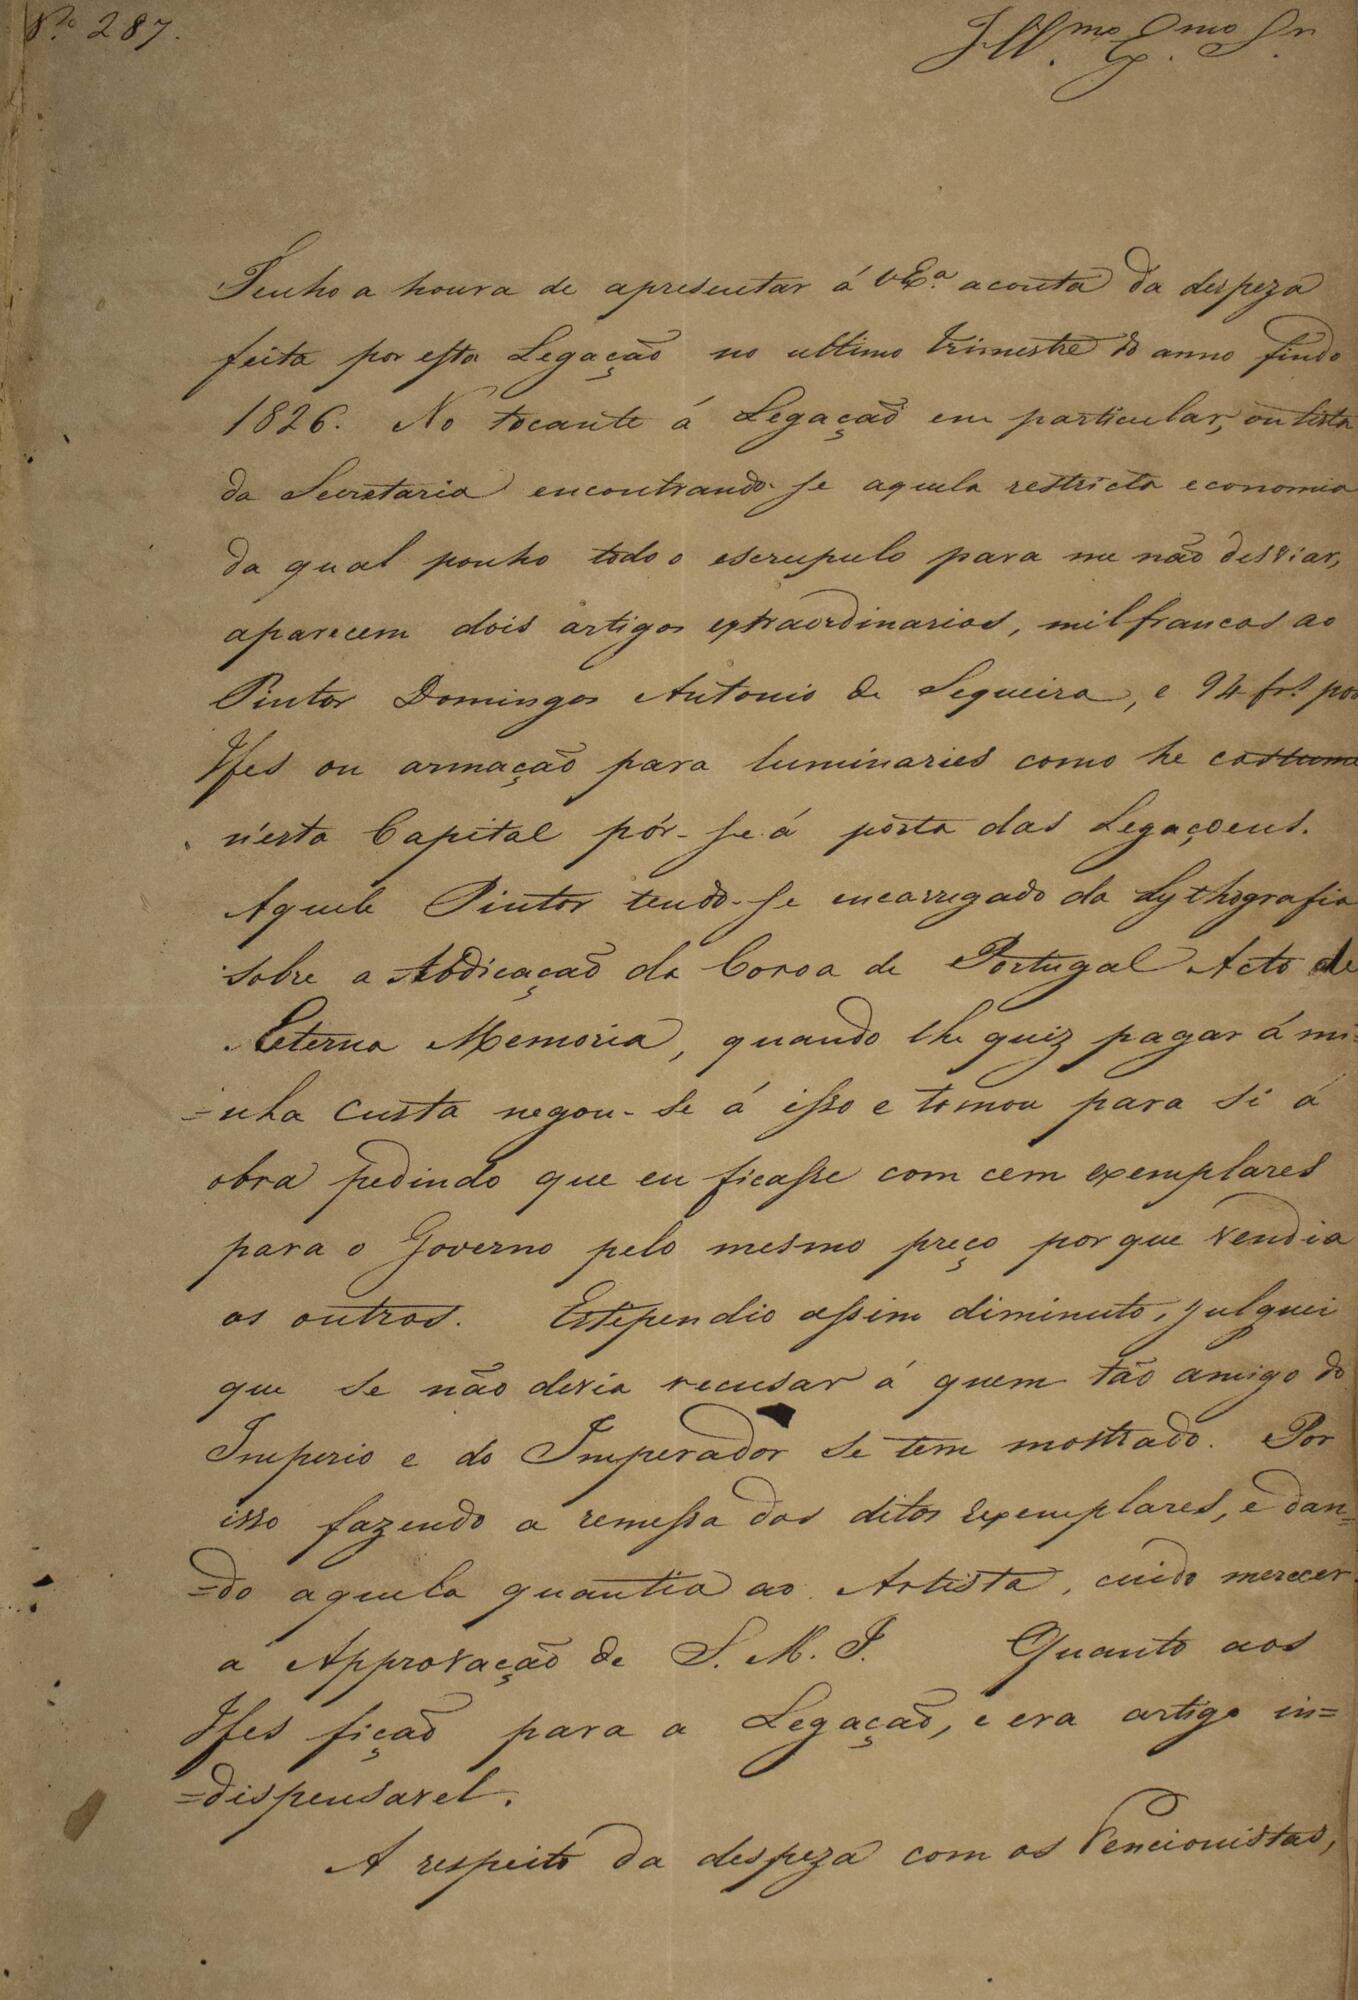 Nº 287.
Illmo. Exmo. Snr.
Tenho a honra de apresentar á VExª. a conta da despeza
feita por esta Legação no ultimo trimestre do anno findo
1826. No tocante á Legação em particular, ou lista
da Secretaria encontrando-se aquela restricta economia
da qual ponho todo o escrupulo para me não desviar,
aparecem dois artigos extraordinarios, mil francos ao
Pintor Domingos Antonio de Sequeira, e 94 frs. por
Ifes ou armação para luminaries como he costume
n'esta Capital pôr-se á porta das Legaçoens.
Aquele Pintor tendo-se encarregado da Lythografia
sobre a Abdicação da Coroa de Portugal Acto de
Eterna Memoria, quando lhe quiz pagar á mi=
=nha custa negou-se á isso e tomou para si á
obra pedindo que eu ficasse com cem exemplares
para o Governo pelo mesmo preço por que vendia
os outros. Estipendio assim diminuto, julguei
que se não devia recusar á quem tão amigo do
Imperio e do Imperador se tem mostrado. Por
isso fazendo a remessa dos ditos exemplares, e dan=
=do aquela quantia ao Artista, cuido merecer
a Approvação de S. M. I. Quanto aos
Ifes ficão para a Legação, e era artigo in=
=dispensavel.
A respeito da despeza com os Pencionistas,